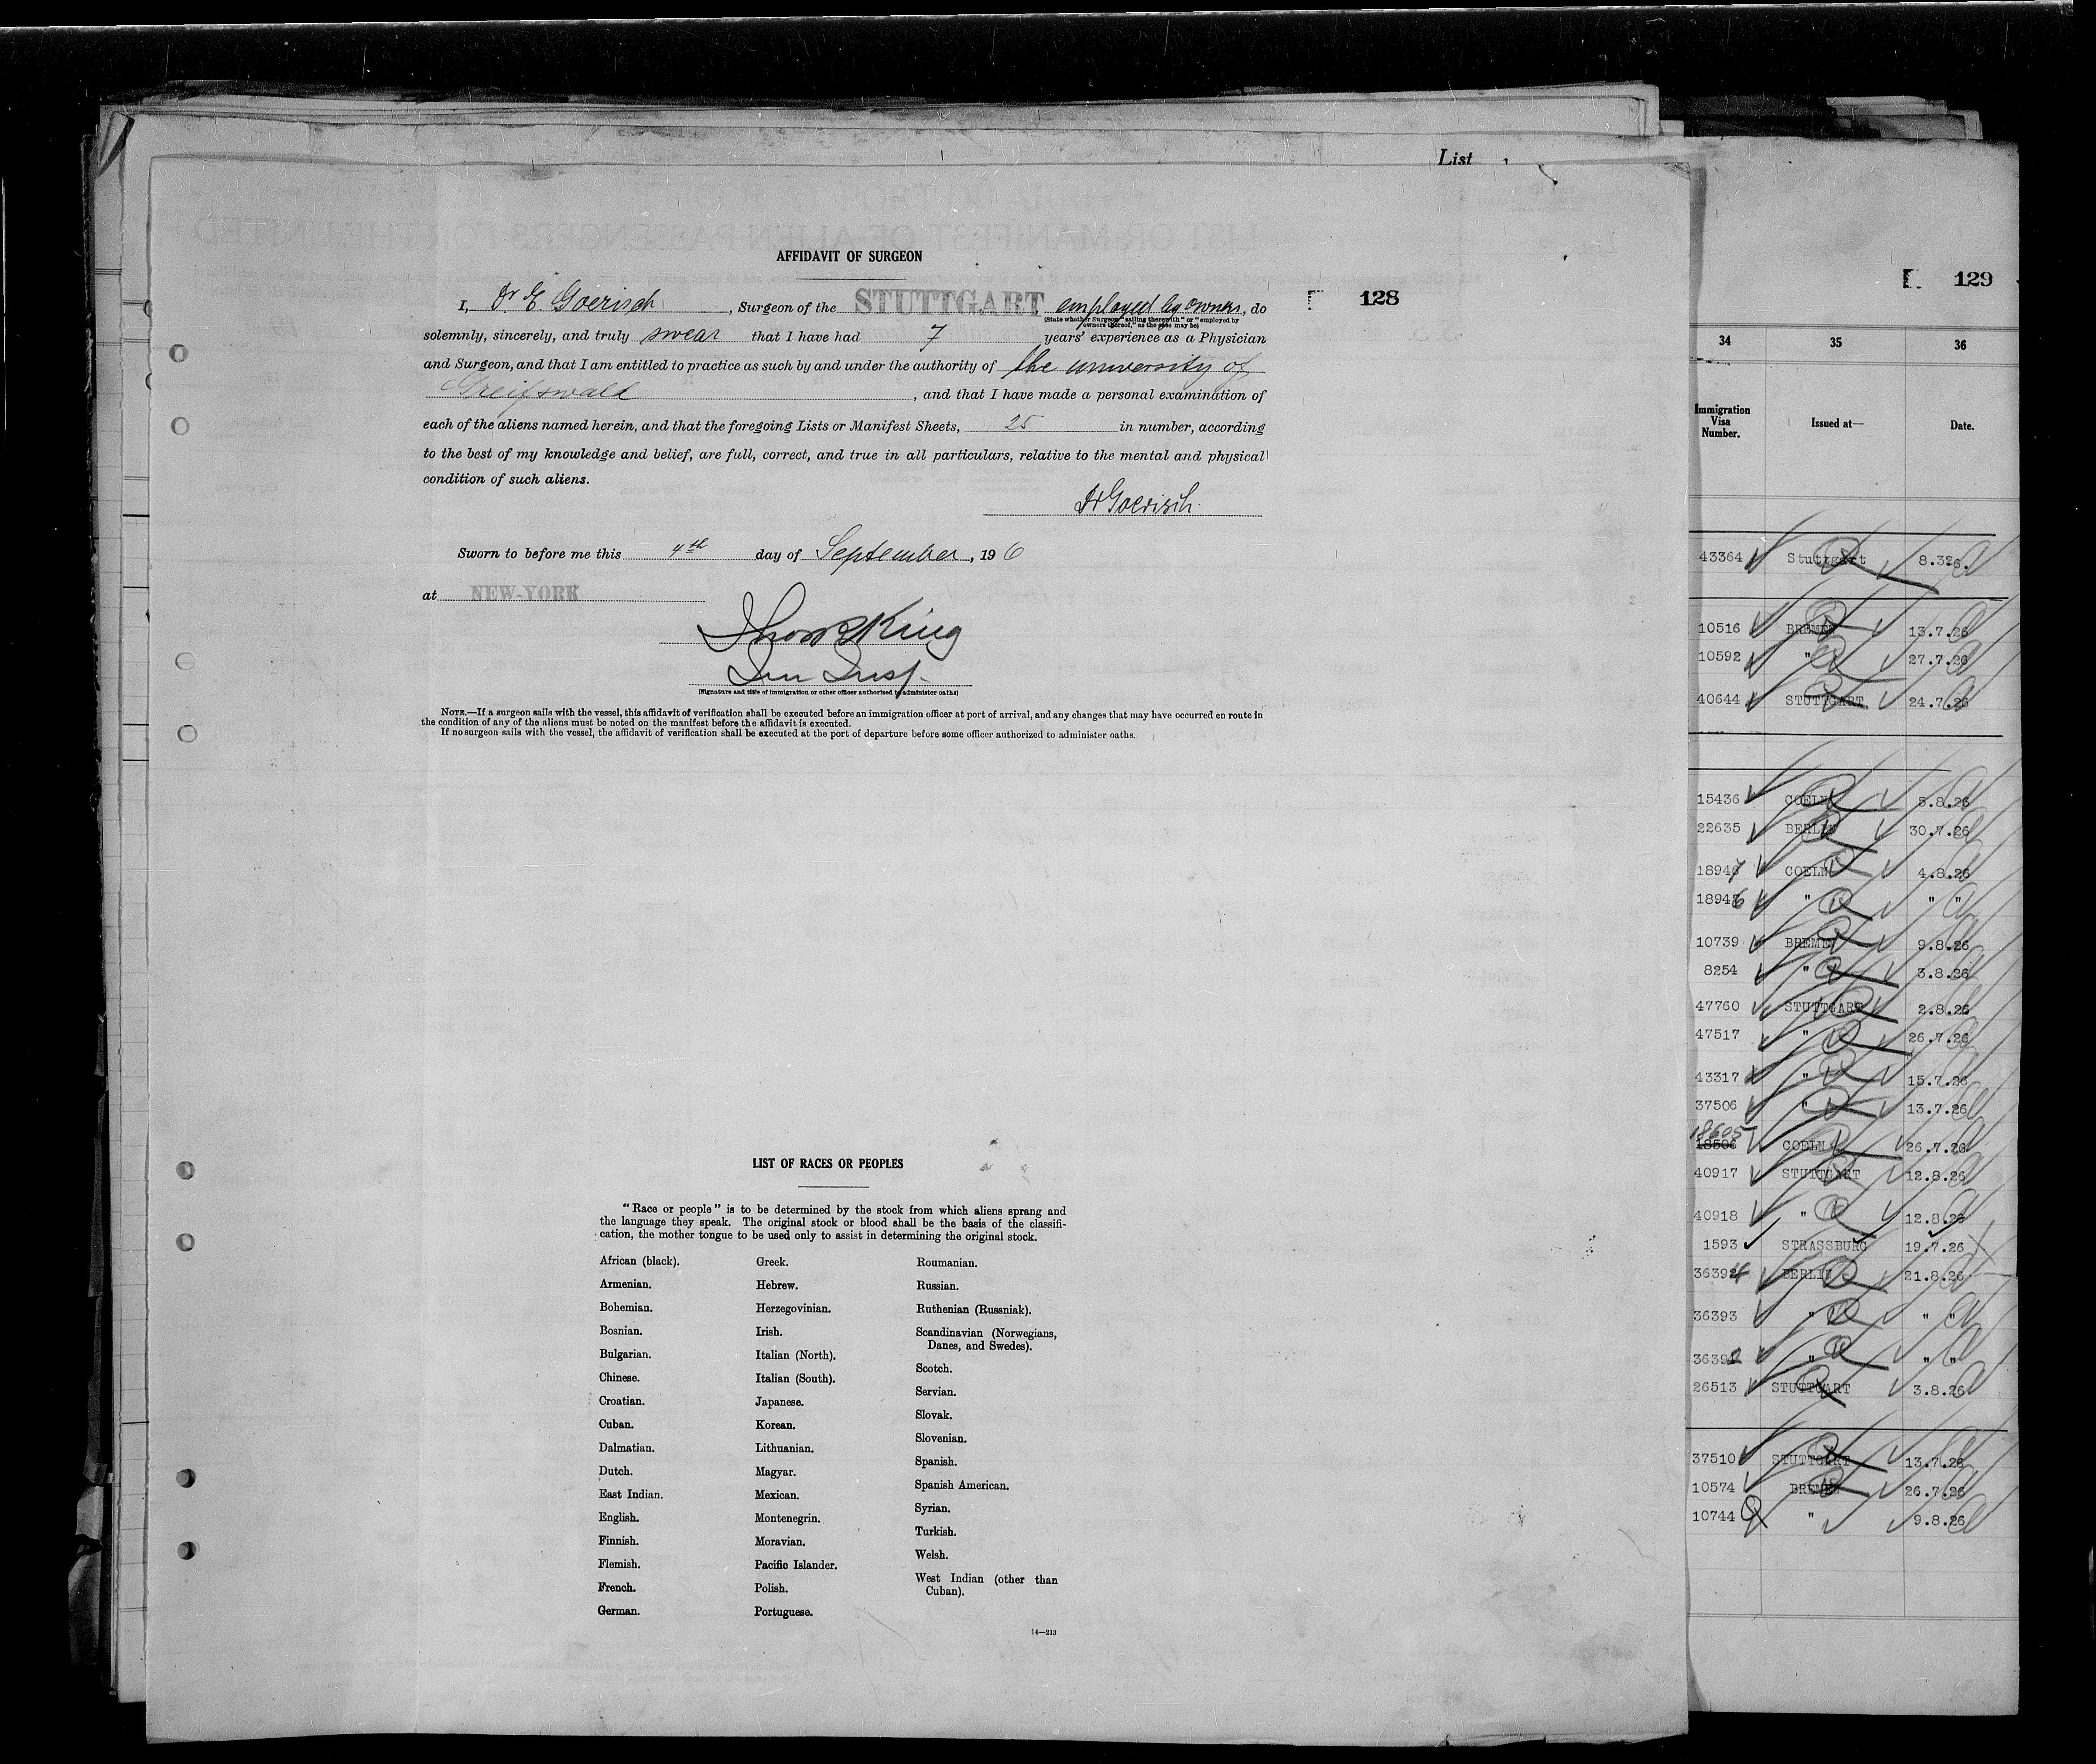 List
AFFIDAVIT OF SURGEON
I, Dr E. Goerisch, Surgeon of the STUTTGART, employed by owners, do
(State whether Surgeon "sailing therewith" or "employed by
owners thereof," as the case may be)
solemnly, sincerely, and truly swear that I have had 7 years' experience as a Physician
and Surgeon, and that I am entitled to practice as such by and under the authority of the university of
Greifswald, and that I have made a personal examination of
each of the aliens named herein, and that the foregoing Lists or Manifest Sheets, 25 in number, according
to the best of my knowledge and belief, are full, correct, and true in all particulars, relative to the mental and physical
condition of such aliens.
Dr Goerisch.
Sworn to before me this 4th day of September, 19 6
at NEW-YORK
King
Imm Insp.
(Signature and title of immigration or other officer authorized to administer oaths)
NOTE.—If a surgeon sails with the vessel, this affidavit of verification shall be executed before an immigration officer at port of arrival, and any changes that may have occurred en route in
the condition of any of the aliens must be noted on the manifest before the affidavit is executed.
If no surgeon sails with the vessel, the affidavit of verification shall be executed at the port of departure before some officer authorized to administer oaths.
128
LIST OF RACES OR PEOPLES
"Race or people" is to be determined by the stock from which aliens sprang and
the language they speak. The original stock or blood shall be the basis of the classifi-
cation, the mother tongue to be used only to assist in determining the original stock.
African (black).
Armenian.
Bohemian.
Bosnian.
Bulgarian.
Chinese.
Croatian.
Cuban.
Dalmatian.
Dutch.
East Indian.
English.
Finnish.
Flemish.
French.
German.
Greek.
Hebrew.
Herzegovinian.
Irish.
Italian (North).
Italian (South).
Japanese.
Korean.
Lithuanian.
Magyar.
Mexican.
Montenegrin.
Moravian.
Pacific Islander.
Polish.
Portuguese.
Roumanian.
Russian.
Ruthenian (Russniak).
Scandinavian (Norwegians,
Danes, and Swedes).
Scotch.
Servian.
Slovak.
Slovenian.
Spanish.
Spanish American.
Syrian.
Turkish.
Welsh.
West Indian (other than
Cuban).
14—213
129
34 35 36
Immigration
Visa
Number. Issued at— Date.
43364 Stuttgart
10516 BREMEN 13.7.26
10592 " 27.7.26
40644 STUTTGART 24.7.26
15436 COELN 5.8.26
22635 BERLIN 30.7.26
18947 COELN 4.8.26
18946 " " "
10739 BREMEN 9.8.26
8254 " 3.8.26
47760 STUTTGART 2.8.26
47517 " 26.7.26
43317 " 15.7.26
37506 " 13.7.26
18605
18506 COELN 26.7.26
40917 STUTTGART 12.8.26
40918 " 12.8.26
1593 STRASSBURG 19.7.26
36394 BERLIN 21.8.26
36393 " " "
36392 " " "
26513 STUTTGART 3.8.26
37510 STUTTGART 13.7.26
10574 BREMEN 26.7.26
10744 " 9.8.26